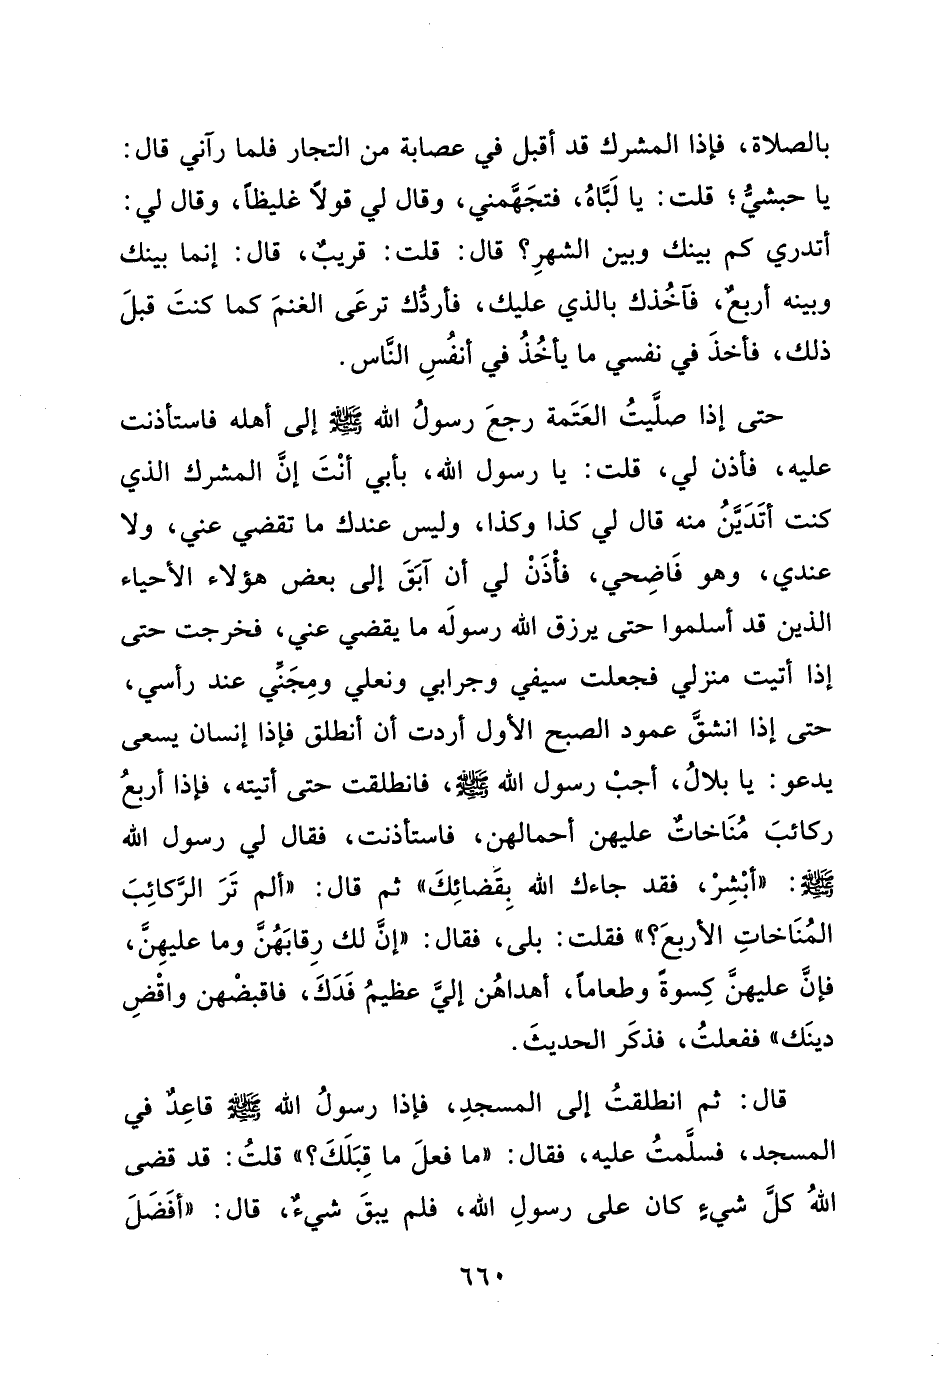 بالصلاة، فإذا المشرك قد أقبل في عصابة من التجار فلما رآني قال:
يا حبشيُّ؛ قلت: يا لَبَّاهُ، فتجَهَّمني، وقال لي قولاً غليظاً، وقال لي:
أتدري كم بينك وبين الشهرِ؟ قال: قلت: قريبٌ، قال: إنما بينك
وبينه أربعٌ، فآخُذك بالذي عليك، فأردُّك ترعَى الغنمَ كما كنتَ قبلَ
ذلك، فأخذَ في نفسي ما يأخُذُ في أنفُسِ النَّاس.
حتى إذا صلَّيتُ العَتَمة رجعَ رسولُ الله ﷺ إلى أهله فاستأذنت
عليه، فأذن لي، قلت: يا رسول الله، بأبي أنْتَ إنَّ المشرك الذي
كنت أتَدَيَّنُ منه قال لي كذا وكذا، وليس عندك ما تقضي عني، ولا
عندي، وهو فَاضِحي، فأْذَنْ لي أن آبَقَ إلى بعض هؤلاء الأحياء
الذين قد أسلموا حتى يرزق الله رسولَه ما يقضي عني، فخرجت حتى
إذا أتيت منزلي فجعلت سيفي وجرابي ونعلي ومِجَنِّي عند رأسي،
حتى إذا انشقَّ عمود الصبح الأول أردت أن أنطلق فإذا إنسان يسعى
يدعو: يا بلالُ، أجبْ رسول الله ﷺ، فانطلقت حتى أتيته، فإذا أربعُ
ركائبَ مُنَاخاتٌ عليهن أحمالهن، فاستأذنت، فقال لي رسول الله
ﷺ: «أبْشِرْ، فقد جاءك الله بِقَضائِكَ» ثم قال: «ألم تَرَ الرَّكائِبَ
المُنَاخاتِ الأربعَ؟» فقلت: بلى، فقال: «إنَّ لك رِقابَهُنَّ وما عليهِنَّ،
فإنَّ عليهنَّ كِسوةً وطعاماً، أهداهُن إليَّ عظيمُ فَدَكَ، فاقبضْهن واقْضِ
دينَك» ففعلتُ، فذكَر الحديثَ.
قال: ثم انطلقتُ إلى المسجدِ، فإذا رسولُ الله ﷺ قاعِدٌ في
المسجد، فسلَّمتُ عليه، فقال: «ما فعلَ ما قِبَلَكَ؟» قلتُ: قد قضى
اللهُ كلَّ شيءٍ كان على رسولِ الله، فلم يبقَ شيءٌ، قال: «أفَضَلَ
٦٦٠